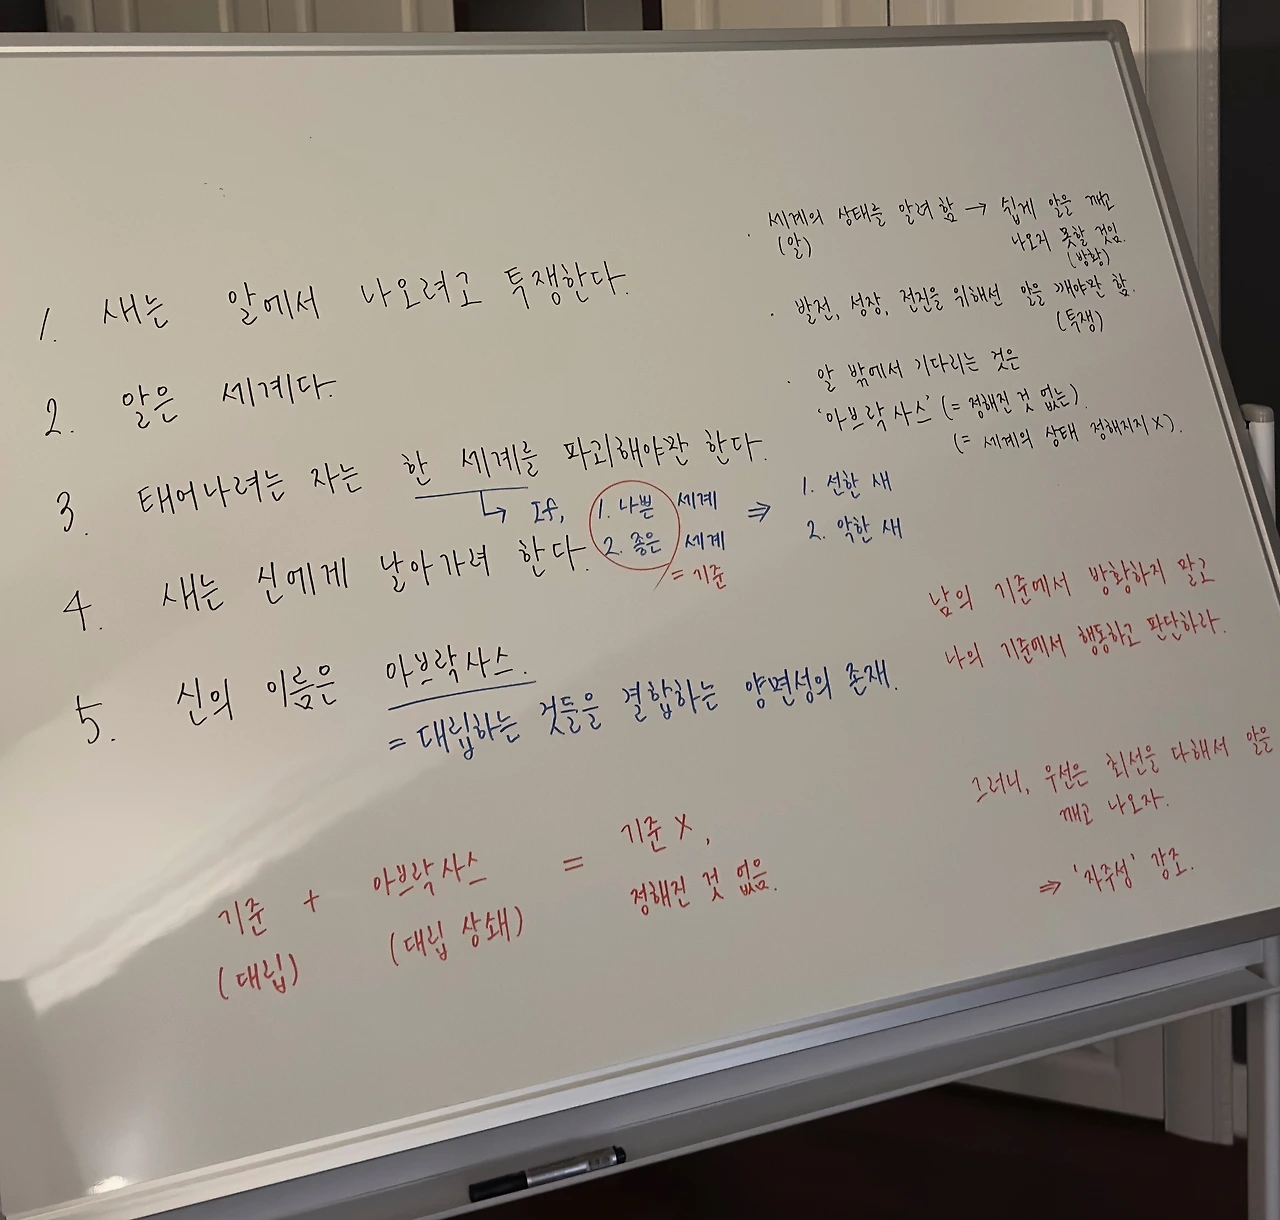 1. 새는 알에서 나오려고 투쟁한다.
2. 알은 세계다.
3. 태어나려는 자는 한 세계를 파괴해야만 한다.
↳ If, 1. 나쁜 세계 ⇒ 1. 선한 새
2. 좋은 세계 2. 악한 새
= 기준
4. 새는 신에게 날아가려 한다.
5. 신의 이름은 아브락사스.
= 대립하는 것들을 결합하는 양면성의 존재.
기준 + 아브락사스 = 기준 X,
(대립) (대립 상쇄) 정해진 것 없음.
· 세계의 상태를 알려 함 → 쉽게 알을 깨고
(알) 나오지 못할 것임.
(방황)
· 발전, 성장, 전진을 위해선 알을 깨야만 함.
(투쟁)
· 알 밖에서 기다리는 것은
'아브락사스' (= 정해진 것 없는)
(= 세계의 상태 정해지지 X).
남의 기준에서 방황하지 말고
나의 기준에서 행동하고 판단하라.
그러니, 우선은 최선을 다해서 알을
깨고 나오자.
⇒ '자주성' 강조.